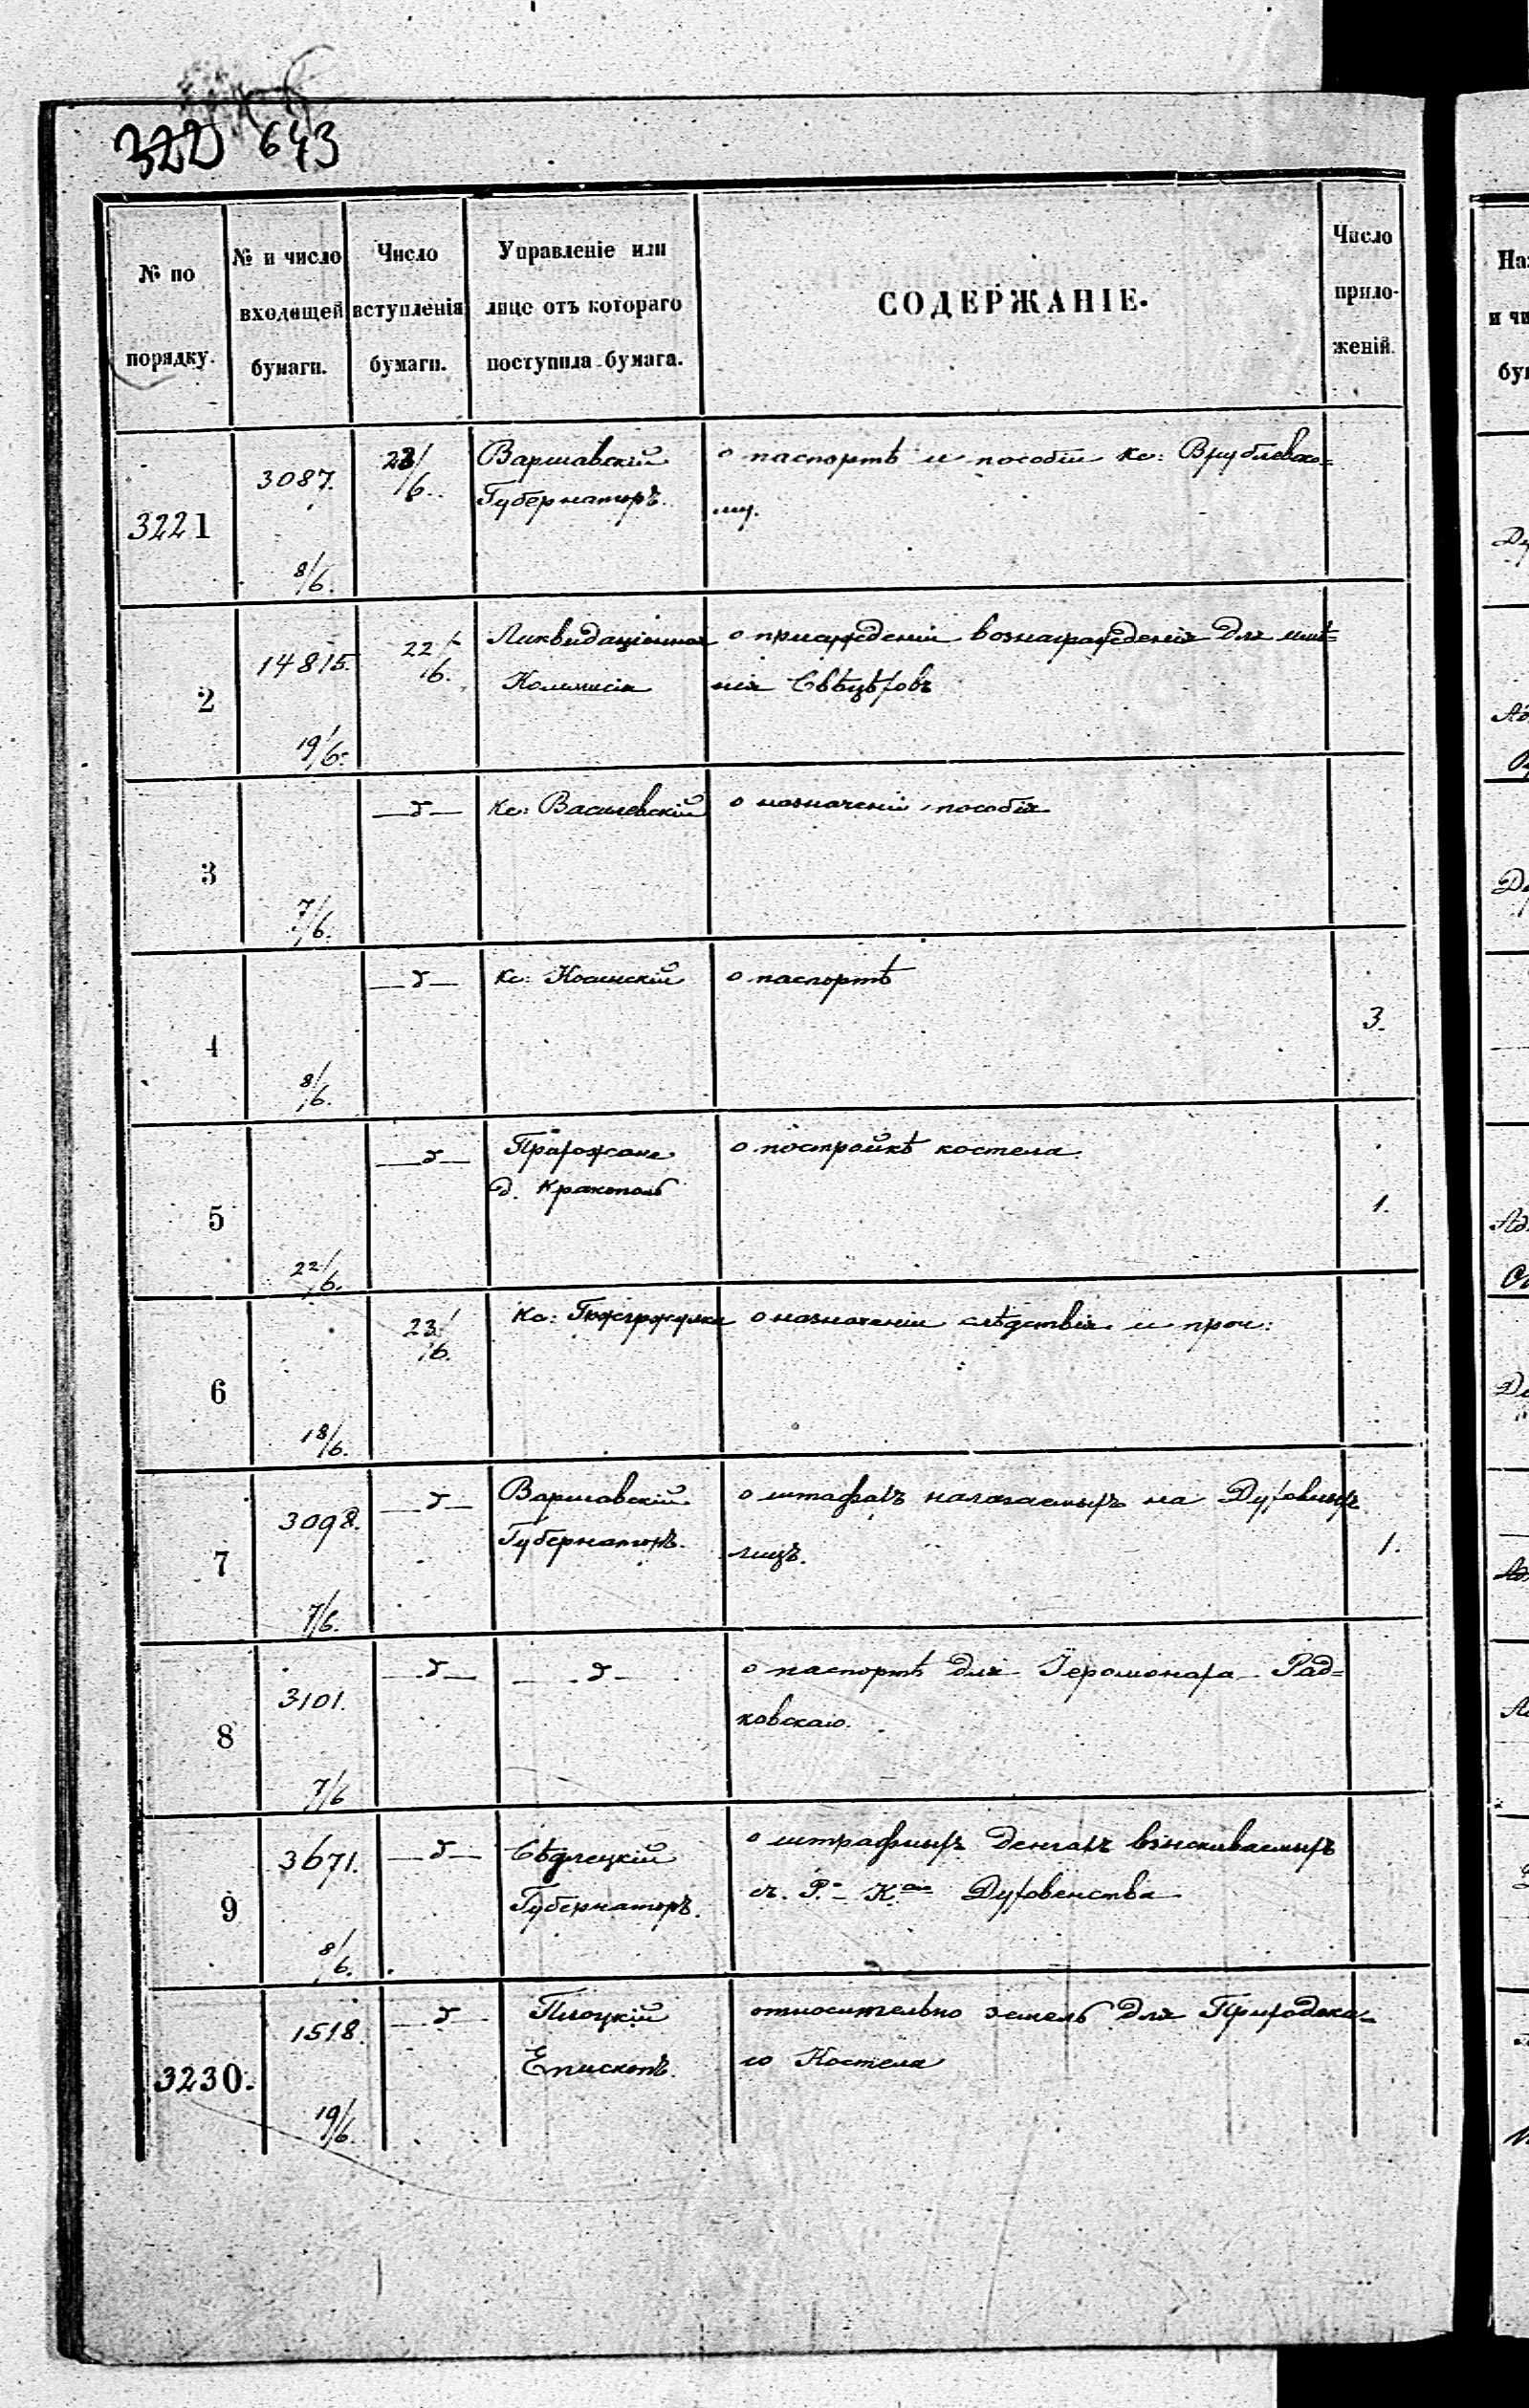 322 643
№ по порядку.
№ и число входящей бумаги.
Число вступленія бумаги.
Управленіе или лице отъ котораго поступила бумага.
СОДЕРЖАНІЕ.
Число прило-
женій.
3221
3087.
8/6.
6.
Варшавскій
Губернаторъ.
о паспортѣ и пособіи кс: Врублевско=
му.
2
14815.
19/6.
22/6.
Ликвидаціонная
Коммисія
о присужденіи вознагражденія для имѣ=
нія
3
7/6.
—т—
Кс: Василевскій
о назначеніи пособія
4
8/6.
—т—
Кс: Косинскій
о паспортѣ
3.
5
22/6.
—т—
Прихожане
д.
о постройкѣ костела.
1.
6
18/6.
23/6.
Кс:
о назначеніи слѣдствія и проч:
7
3098.
7/6.
—т—
Варшавскій
Губернаторъ.
о штафахъ налагаемыхъ на Духовныхъ
лицъ.
1.
8
3101.
7/6
—т—
—т—
о паспортѣ для Іеромонаха Рад=
ковскаго.
9
3671.
8/6.
—т—
Сѣдлецкій
Губернаторъ.
о штрафныхъ деньгахъ взыскиваемыхъ
съ Р.- К. Духовенства
3230.
1518.
19/6.
—т—
Плоцкій
Епископъ.
относительно земель для
го Костела